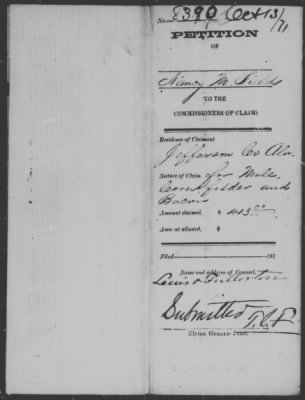 No. 8390 Oct 13/71
PETITION
OF
Nancy M. Fields
TO THE
COMMISSIONERS OF CLAIMS
Residence of Claimant
Jefferson Co Ala.
Nature of Claim for Mule
Corn fodder and
Bacon
Amount claimed, $ 413.00
Amount allowed, $
Filed 187
Name and address of Counsel,
Lewis & Fullerton
Submitted
Elyton Herald Print.